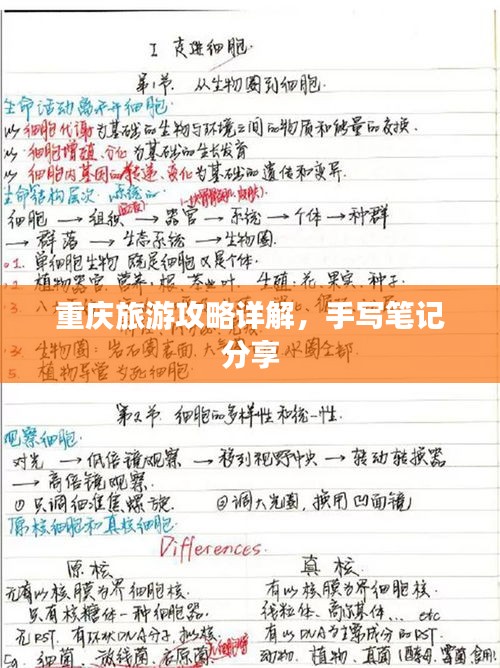 I 走进细胞.
第1节. 从生物圈到细胞.
生命活动离不开细胞:
以 细胞代谢为基础的生物与环境之间的物质和能量的交换.
以 细胞增殖、分化为基础的生长发育
以 细胞内基因的传递、变化为基础的遗传和变异.
生命结构层次: 系统的
细胞 → 组织 → 器官 → 系统 → 个体 → 种群
→ 群落 → 生态系统 → 生物圈.
1. 单细胞生物 既是细胞又是个体.
2. 植物器官. 营养: 根、茎、叶 生殖: 花、果实、种子.
3.
重庆旅游攻略详解，手写笔记
分享
生物圈: 岩石圈表面、大气 水圈全部.
5. 植物导管为死细胞
第2节. 细胞的多样性和统一性.
观察细胞:
对光 → 低倍镜观察 → 移到视野中央 → 转动转换器
→ 高倍镜观察.
① 只调细准焦螺旋. ② 调大光圈, 换用凹面镜
原核细胞和真核细胞
Differences.
原核 真核
无有以核膜为界细胞核. 有以核膜为界细胞核.
只有核糖体一种细胞器. 线粒体、高尔基体... etc
有环状DNA分子, 拟核. 有以DNA为主要成分的
细菌、放线菌、衣原体 动物、植物、真菌